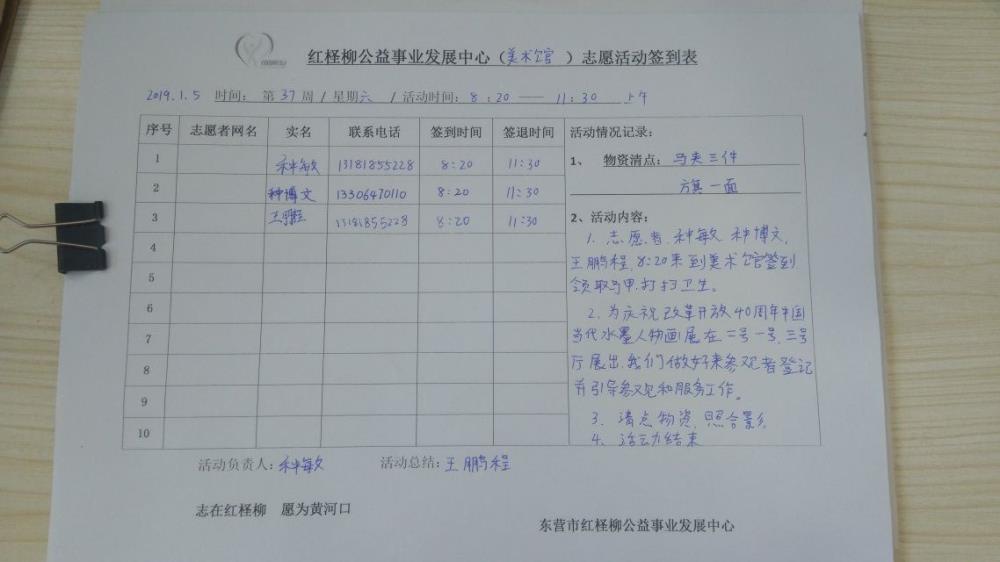 红柽柳公益事业发展中心（美术馆 ）志愿活动签到表
2019.1.5 时间： 第37周 / 星期六 / 活动时间：8：20 —— 11：30 上午
序号 志愿者网名 实名 联系电话 签到时间 签退时间
1 种敏 13181855228 8:20 11:30
2 种博文 13306470110 8:20 11:30
3 王鹏程 13181855228 8:20 11:30
4
5
6
7
8
9
10
活动情况记录：
1、 物资清点：马夹三件
方旗一面
2、活动内容：
1. 志愿者,种敏 种博文,
王鹏程, 8:20来到美术馆签到
领取马甲.打扫卫生。
2. 为庆祝改革开放40周年中国
当代水墨人物画展在二号一号、三号
厅展出.我们做好来参观者登记
并引导参观和服务工作。
3. 清点物资, 照合影
4. 活动结束
活动负责人：种敏 活动总结：王鹏程
志在红柽柳 愿为黄河口
东营市红柽柳公益事业发展中心